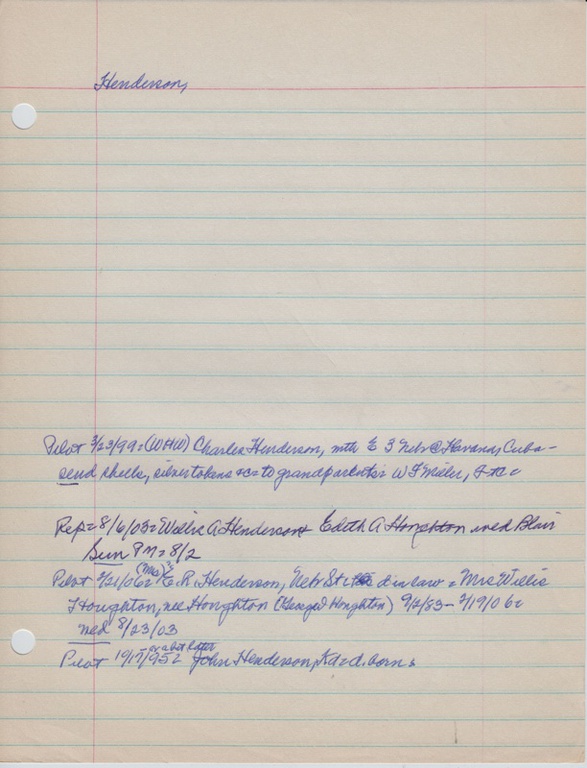 Henderson,
Pilot 3/23/99 = (WHW) Charles Henderson, mth E 3 Nebr @ Havana, Cuba -
send shells, silver tokens &c = to grandparents = W F Miller,
Rep = 8/6/03 = Willis A Henderson + Edith A Houghton wed Blair
Sun PM = 8/2
Pilot 2/21/06 = (Mrs) E. R. Henderson, Nebr St d in law = Mrs Willis
Houghton, nee Houghton (George W Houghton) 9/2/83 - 2/19/06 =
wed 8/23/03
Pilot 10/17/95 = or abit later John Henderson, Kd = d. born